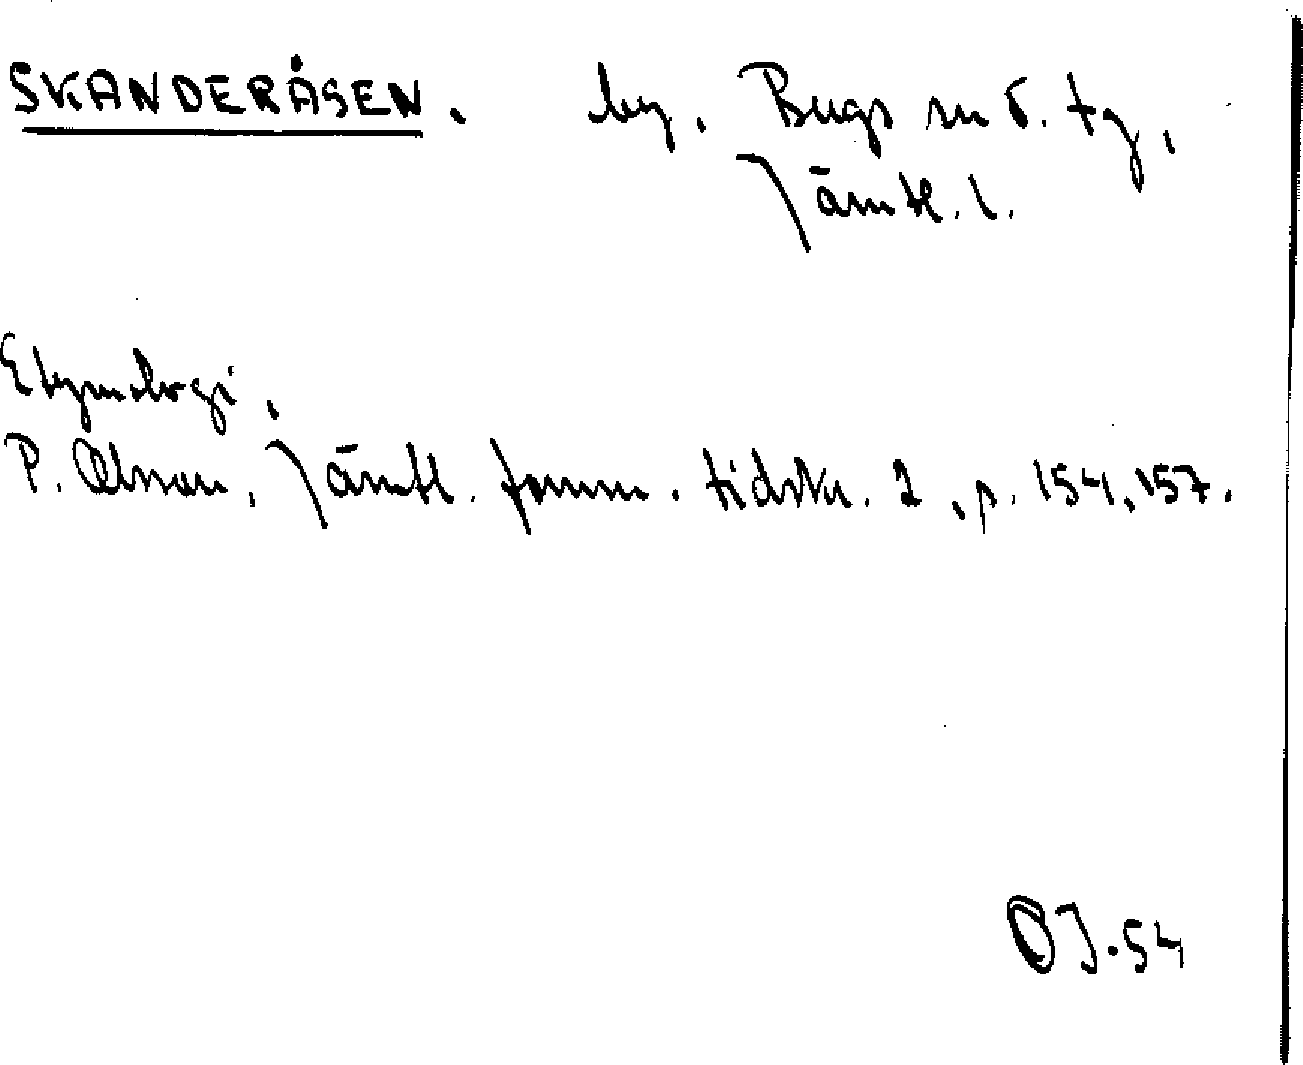 SKANDERÅSEN. by, Bergs sn o. tg,
Jämtl. l.
Etymologi,
P. Olsson, Jämtl. fornm. tidskr. 2, p. 154, 157.
OJ. 54